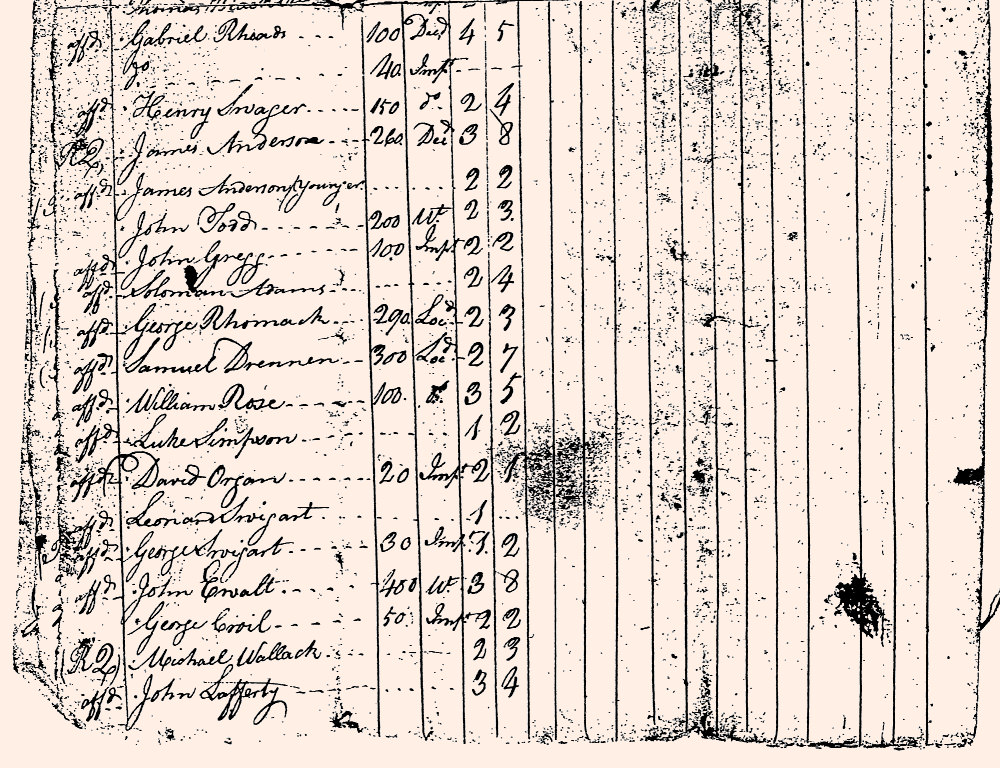 affd Gabriel Rhoads 100 Died 4 5
Do 40 Impt
affd Henry Swager 150 do 2 4
R2 James Anderson 260 Ded 3 8
affd James Anderson younger 2 2
John Todd 200 Wt 2 3
affd John Gregg 100 Impt 2 2
affd Soloman Adams 2 4
affd George Rhomack 290 Locd 2 3
affd Samuel Drennen 300 Locd 2 7
affd William Rose 100 3 5
affd Luke Simpson 1 2
affd David Organ 20 Impt 2 1
affd Leonard Swigart 1
affd George Swigart 30 Impt 1 2
affd John Ewalt 400 Wt 3 8
George Croil 50 Impt 2 2
R2 Michael Wallack 2 3
affd John Lafferty 3 4